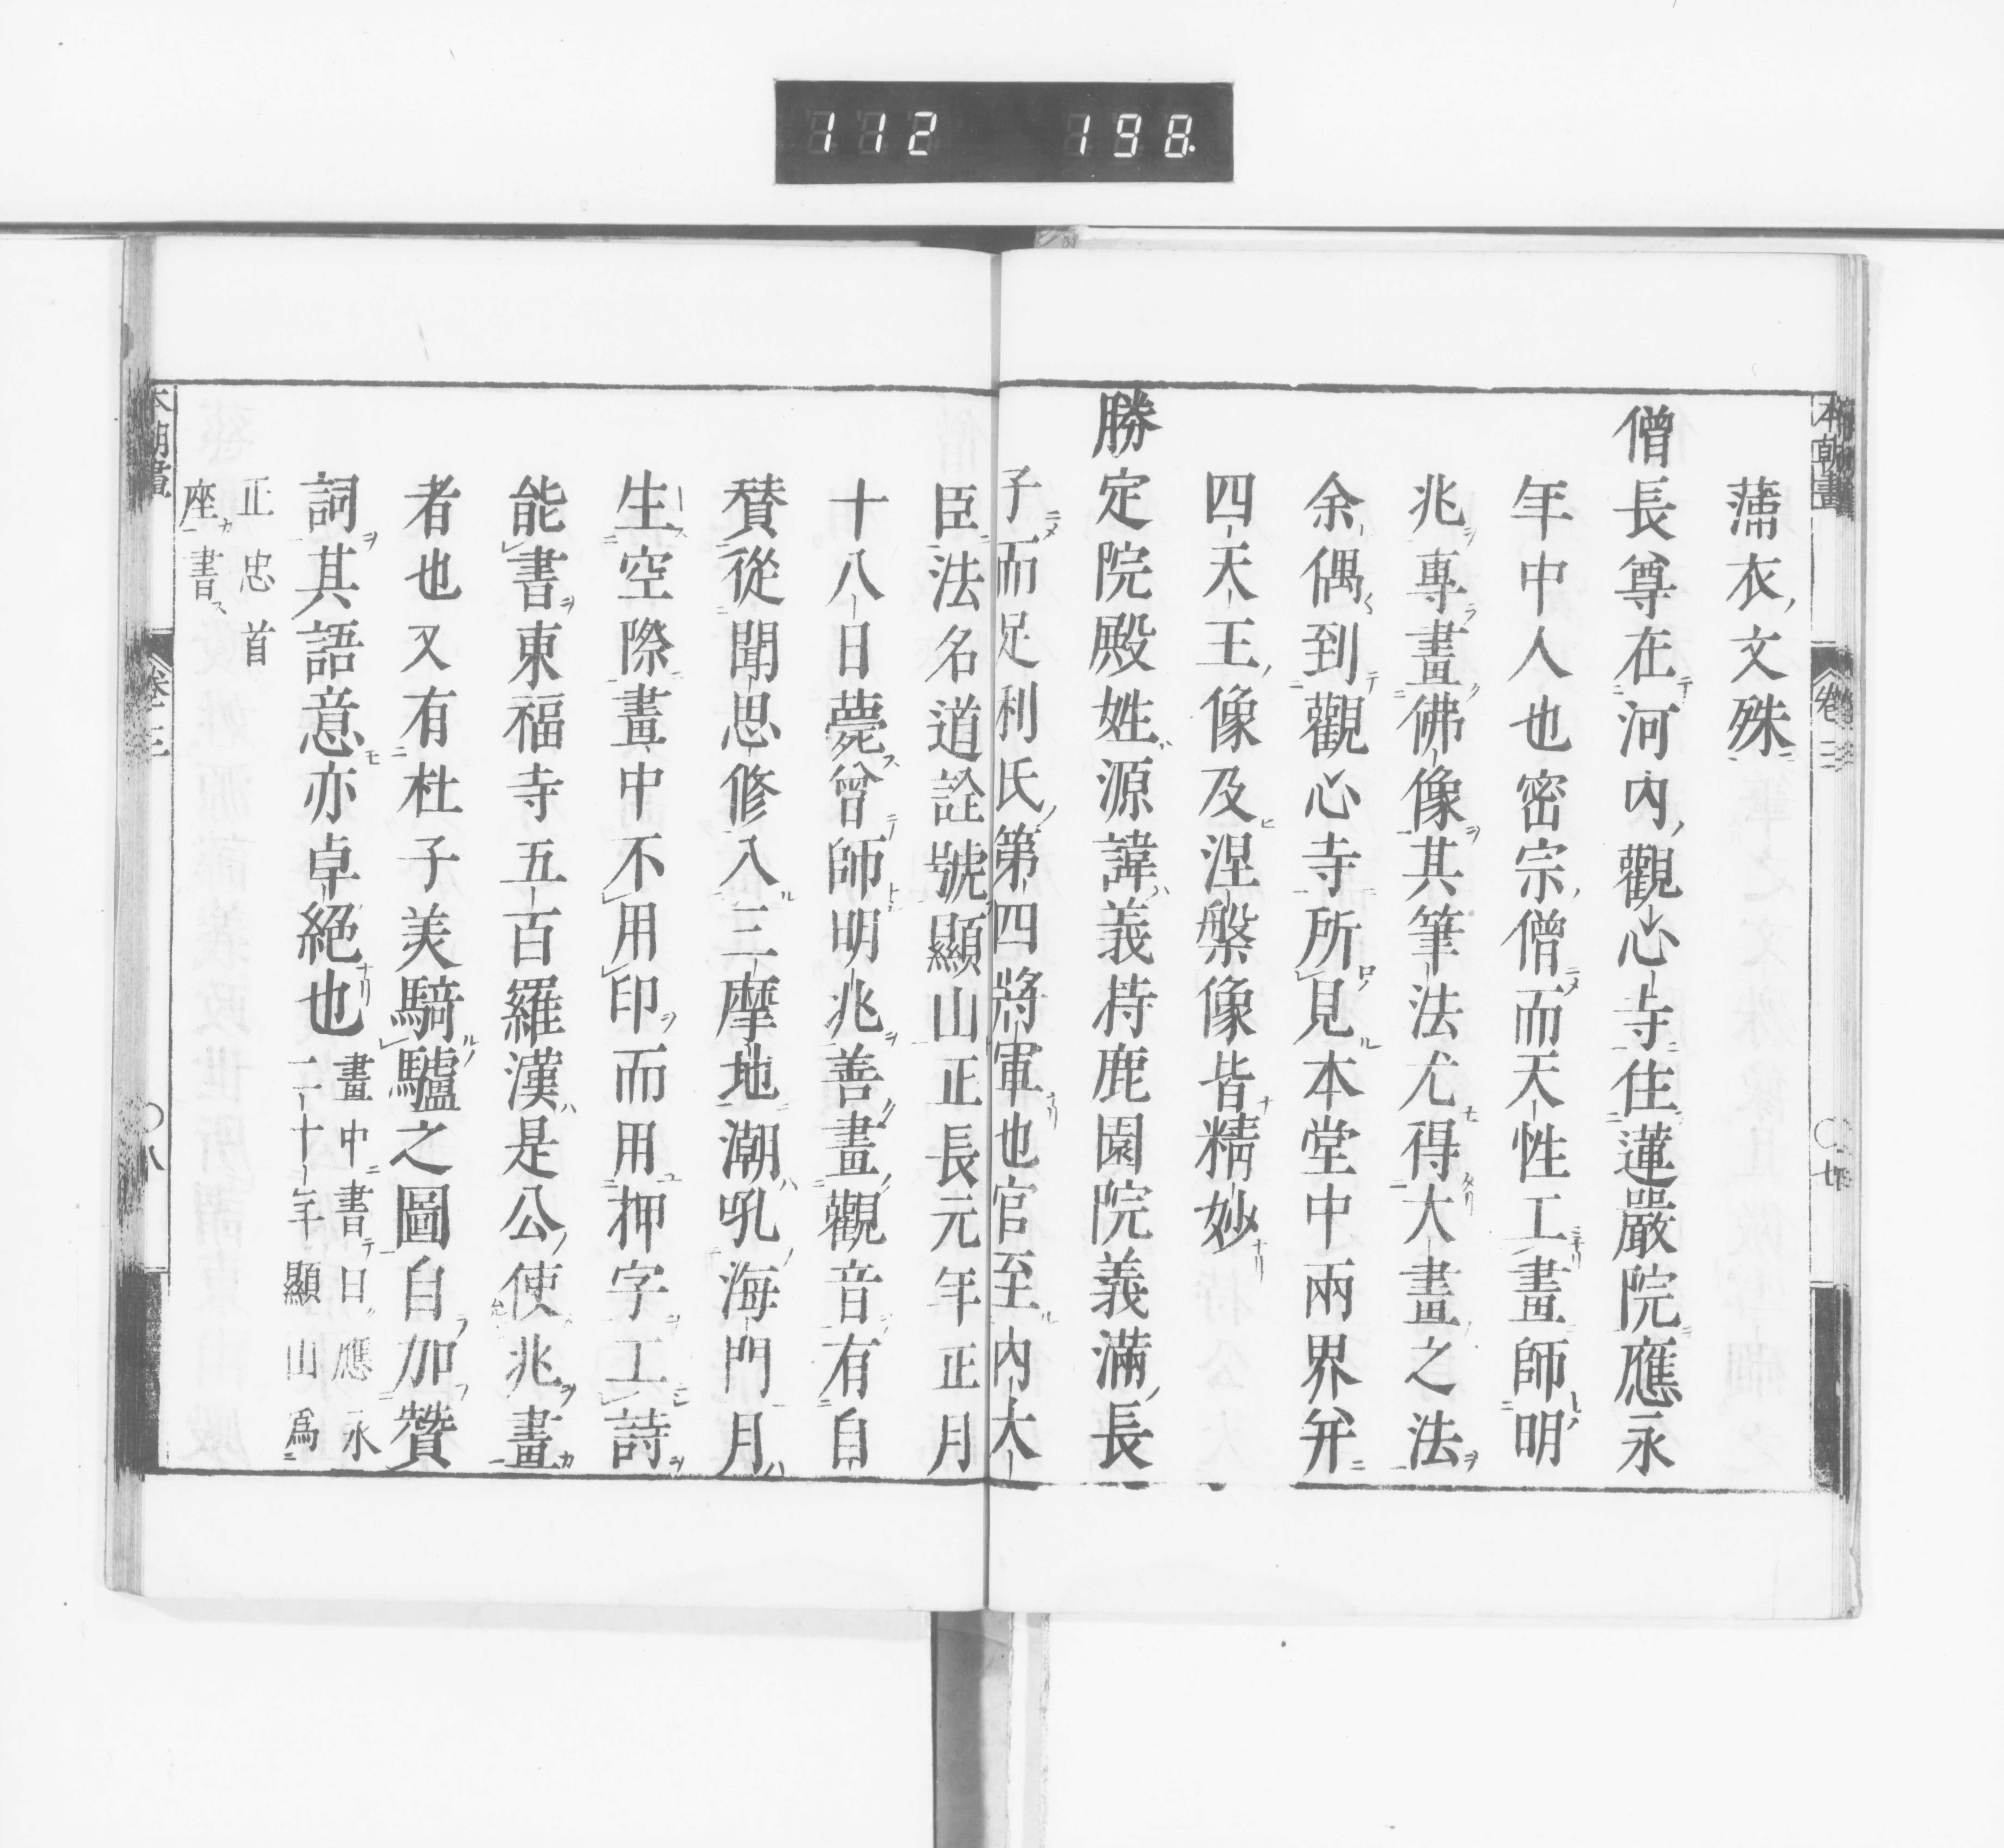 112 198
本朝畫
卷三
蒲衣文殊
僧長尊在河內觀心寺住蓮嚴院應永
年中人也密宗僧而天性工畫師明
兆專畫佛像其筆法尤得大畫之法
余偶到觀心寺所見本堂中兩界并
四天王像及涅槃像皆精妙
勝定院殿姓源諱義持鹿園院義滿長
子而足利氏第四將軍也官至內大
臣法名道詮號顯山正長元年正月
十八日薨曾師明兆善畫觀音有自
賛從聞思修入三摩地潮吼海門月
生空際畫中不用印而用押字工詩
能書東福寺五百羅漢是公使兆畫
者也又有杜子美騎驢之圖自加贊
詞其語意亦卓絕也
畫中書曰應永
二十年顯山爲
正忠首
座書
本朝畫
卷三
〇八